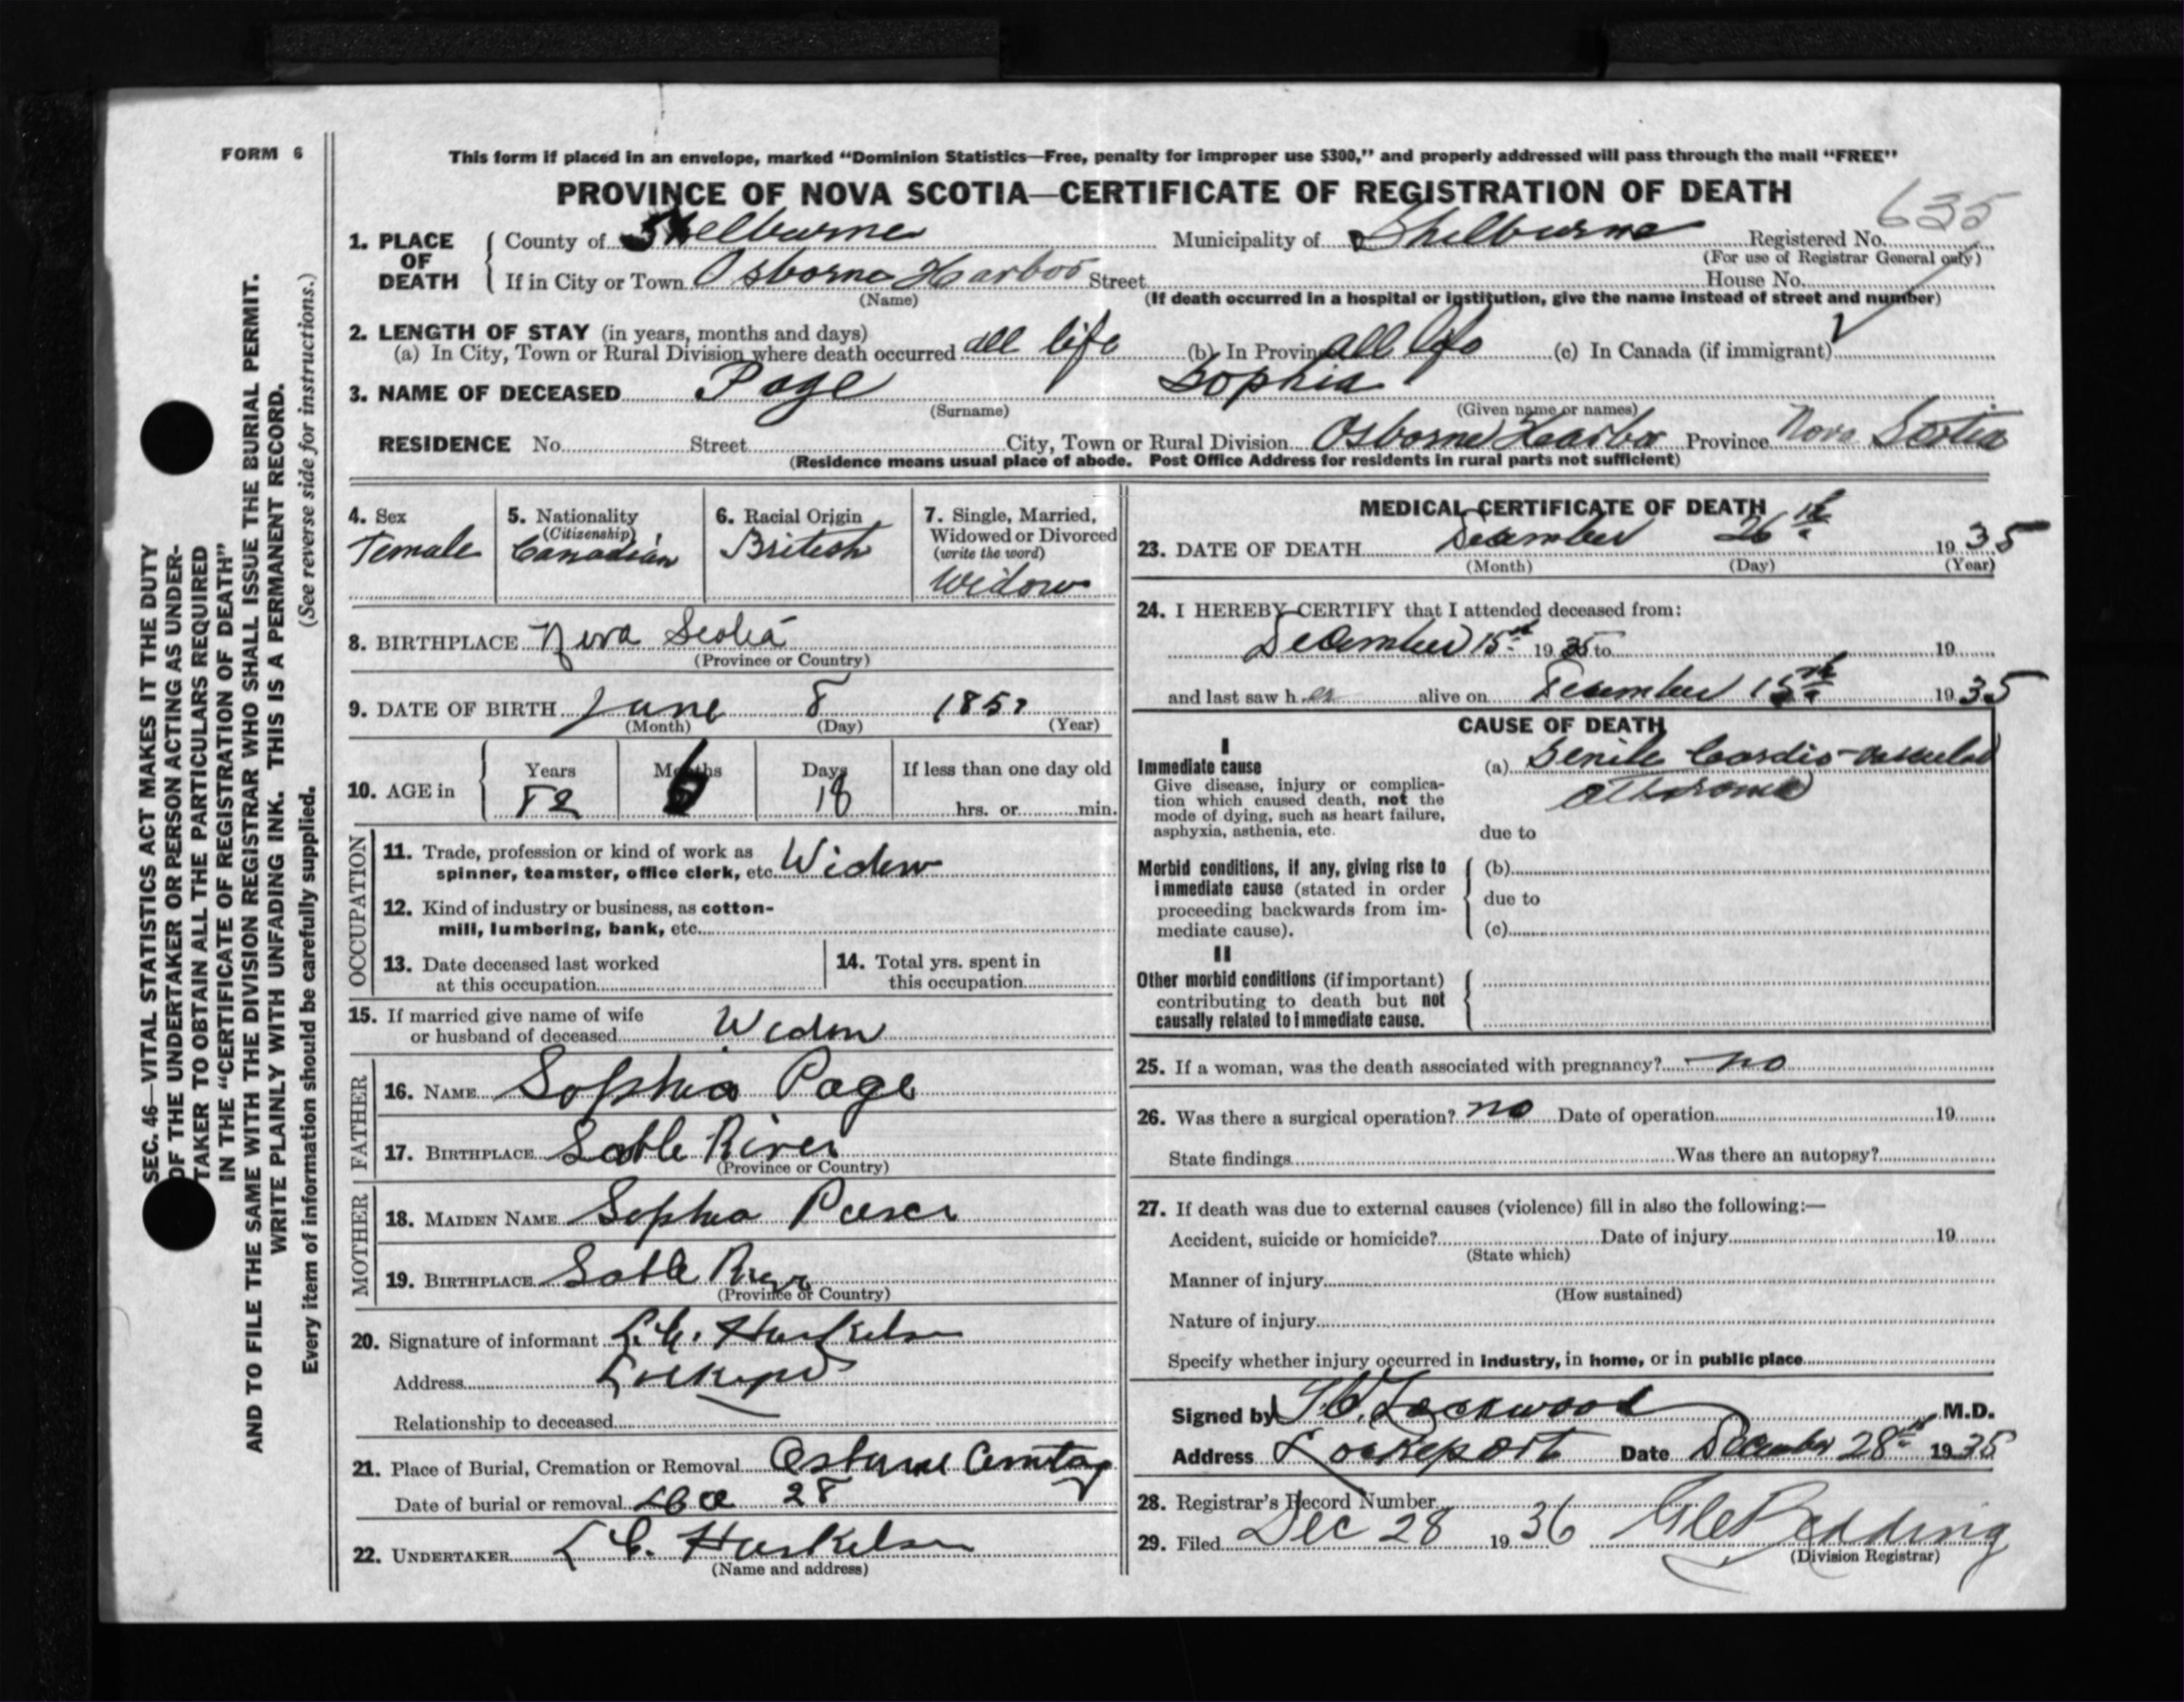 FORM 6
This form if placed in an envelope, marked "Dominion Statistics—Free, penalty for improper use $300," and properly addressed will pass through the mail "FREE"
PROVINCE OF NOVA SCOTIA—CERTIFICATE OF REGISTRATION OF DEATH
635
1. PLACE OF DEATH County of Shelburne Municipality of Shelburne Registered No.
(For use of Registrar General only)
If in City or Town Osborne Harbor Street House No.
(Name) (If death occurred in a hospital or institution, give the name instead of street and number)
2. LENGTH OF STAY (in years, months and days)
(a) In City, Town or Rural Division where death occurred all life (b) In Province all life (c) In Canada (if immigrant)
3. NAME OF DECEASED Page Sophia
(Surname) (Given name or names)
RESIDENCE No. Street City, Town or Rural Division Osborne Harbor Province Nova Scotia
(Residence means usual place of abode. Post Office Address for residents in rural parts not sufficient)
4. Sex
Female
5. Nationality
(Citizenship)
Canadian
6. Racial Origin
British
7. Single, Married,
Widowed or Divorced
(write the word)
Widow
8. BIRTHPLACE Nova Scotia
(Province or Country)
9. DATE OF BIRTH June 8
(Month) (Day) (Year)
10. AGE in Years Months Days If less than one day old
6 18 hrs. or min.
OCCUPATION
11. Trade, profession or kind of work as
spinner, teamster, office clerk, etc. Widow
12. Kind of industry or business, as cotton-
mill, lumbering, bank, etc.
13. Date deceased last worked
at this occupation
14. Total yrs. spent in
this occupation
15. If married give name of wife
or husband of deceased Widow
FATHER
16. NAME Sophia Page
17. BIRTHPLACE Sable River
(Province or Country)
MOTHER
18. MAIDEN NAME Sophia
19. BIRTHPLACE Sable River
(Province or Country)
20. Signature of informant L. C.
Address Lockeport
Relationship to deceased
21. Place of Burial, Cremation or Removal Osborne Cemetary
Date of burial or removal 28
22. UNDERTAKER L C.
(Name and address)
MEDICAL CERTIFICATE OF DEATH
23. DATE OF DEATH December 26th 1935
(Month) (Day) (Year)
24. I HEREBY CERTIFY that I attended deceased from:
December 15th 1935 to 19
and last saw her alive on December 15th 1935
CAUSE OF DEATH
I
Immediate cause
Give disease, injury or complica-
tion which caused death, not the
mode of dying, such as heart failure,
asphyxia, asthenia, etc.
(a) Senile Cardio-vascular
atheroma
due to
Morbid conditions, if any, giving rise to
immediate cause (stated in order
proceeding backwards from im-
mediate cause).
(b)
due to
(c)
II
Other morbid conditions (if important)
contributing to death but not
causally related to immediate cause.
25. If a woman, was the death associated with pregnancy? no
26. Was there a surgical operation? no Date of operation 19
State findings Was there an autopsy?
27. If death was due to external causes (violence) fill in also the following:—
Accident, suicide or homicide? Date of injury 19
(State which)
Manner of injury
(How sustained)
Nature of injury
Specify whether injury occurred in industry, in home, or in public place
Signed by Lockwood M.D.
Address Lockeport Date December 28th 1935
28. Registrar's Record Number
29. Filed Dec 28 1936 Redding
(Division Registrar)
SEC. 46—VITAL STATISTICS ACT MAKES IT THE DUTY
OF THE UNDERTAKER OR PERSON ACTING AS UNDER-
TAKER TO OBTAIN ALL THE PARTICULARS REQUIRED
IN THE "CERTIFICATE OF REGISTRATION OF DEATH"
AND TO FILE THE SAME WITH THE DIVISION REGISTRAR WHO SHALL ISSUE THE BURIAL PERMIT.
WRITE PLAINLY WITH UNFADING INK. THIS IS A PERMANENT RECORD.
Every item of information should be carefully supplied. (See reverse side for instructions.)